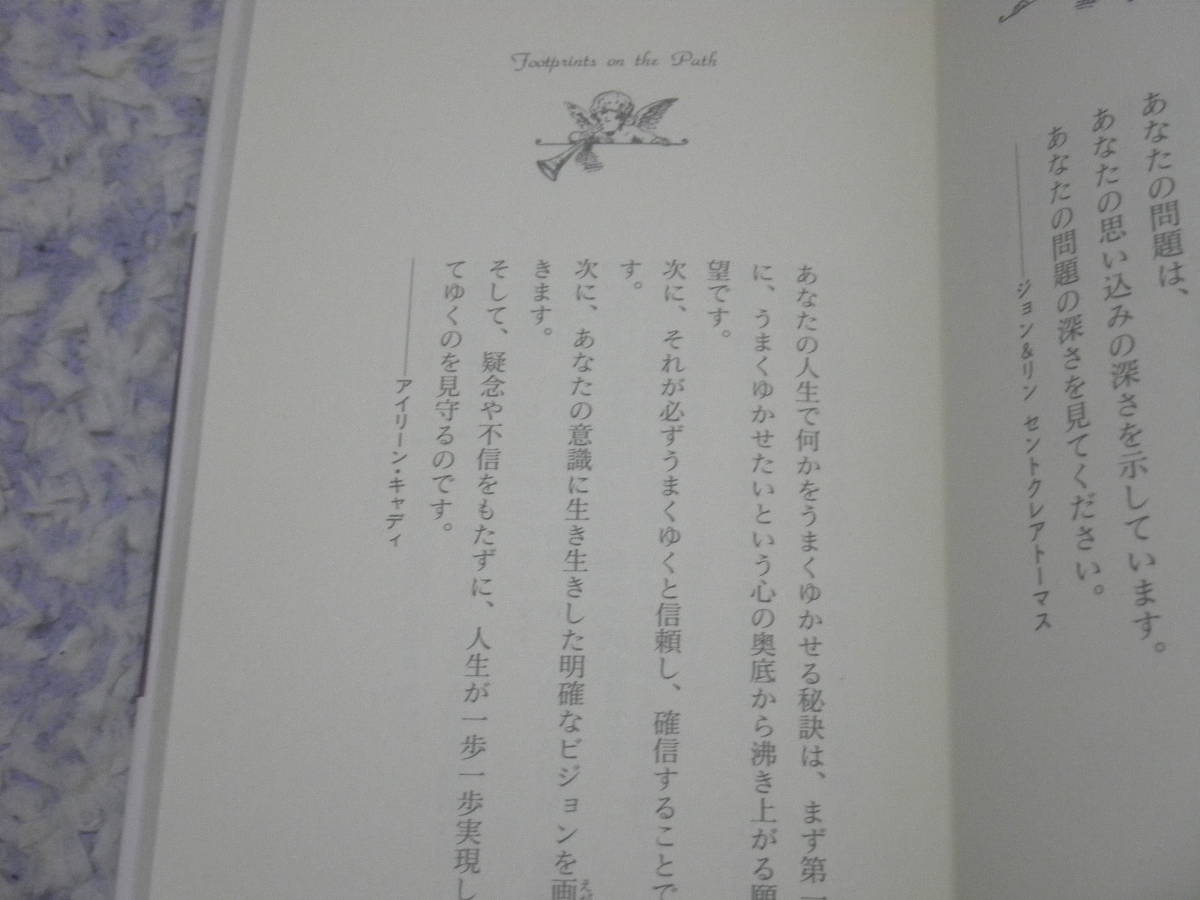 あなたの問題は、
あなたの思い込みの深さを示しています。
あなたの問題の深さを見てください。
――ジョン&リン セントクレアトーマス
Footprints on the Path
あなたの人生で何かをうまくゆかせる秘訣は、まず第一
に、うまくゆかせたいという心の奥底から沸き上がる願
望です。
次に、それが必ずうまくゆくと信頼し、確信することで
す。
次に、あなたの意識に生き生きした明確なビジョンを画
きます。
そして、疑念や不信をもたずに、人生が一歩一歩実現し
てゆくのを見守るのです。
――アイリーン・キャディ